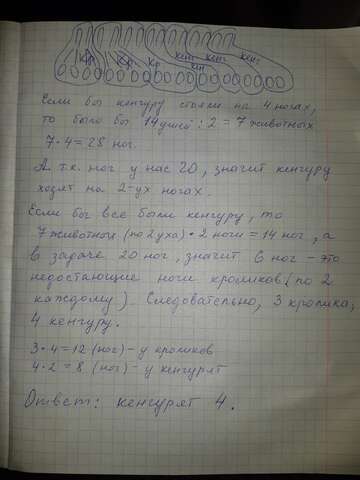 кр кр кр кен кен кен
кен
Если бы кенгуру стояли на 4 ногах,
то было бы 14 ушей : 2 = 7 животных
7 · 4 = 28 ног.
А т.к. ног у нас 20, значит кенгуру
ходят на 2-ух ногах.
Если бы все были кенгуру, то
7 животных (по 2 уха) · 2 ноги = 14 ног, а
в задаче 20 ног, значит 6 ног - это
недостающие ноги кроликов (по 2
каждому). Следовательно, 3 кролика,
4 кенгуру.
3 · 4 = 12 (ног) - у кроликов
4 · 2 = 8 (ног) - у кенгурят
Ответ: кенгурят 4.